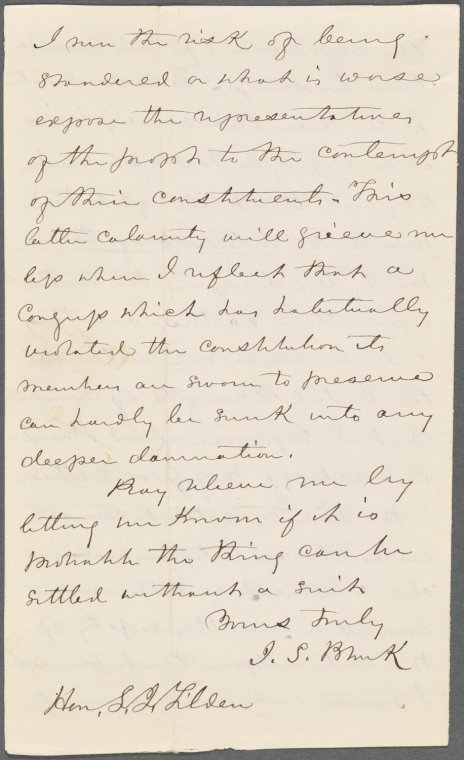 I run the risk of being
slandered or what is worse
expose the representatives
of the people to the contempt
of their constituents. This
latter calamity will grieve me
less when I reflect that a
Congress which has habitually
violated the constitution its
members are sworn to preserve
can hardly be sunk into any
deeper damnation.
Pray relieve me by
letting me know if it is
probable the thing can be
settled without a suit
Yours Truly
J. S. Black
Hon. S. J. Tilden